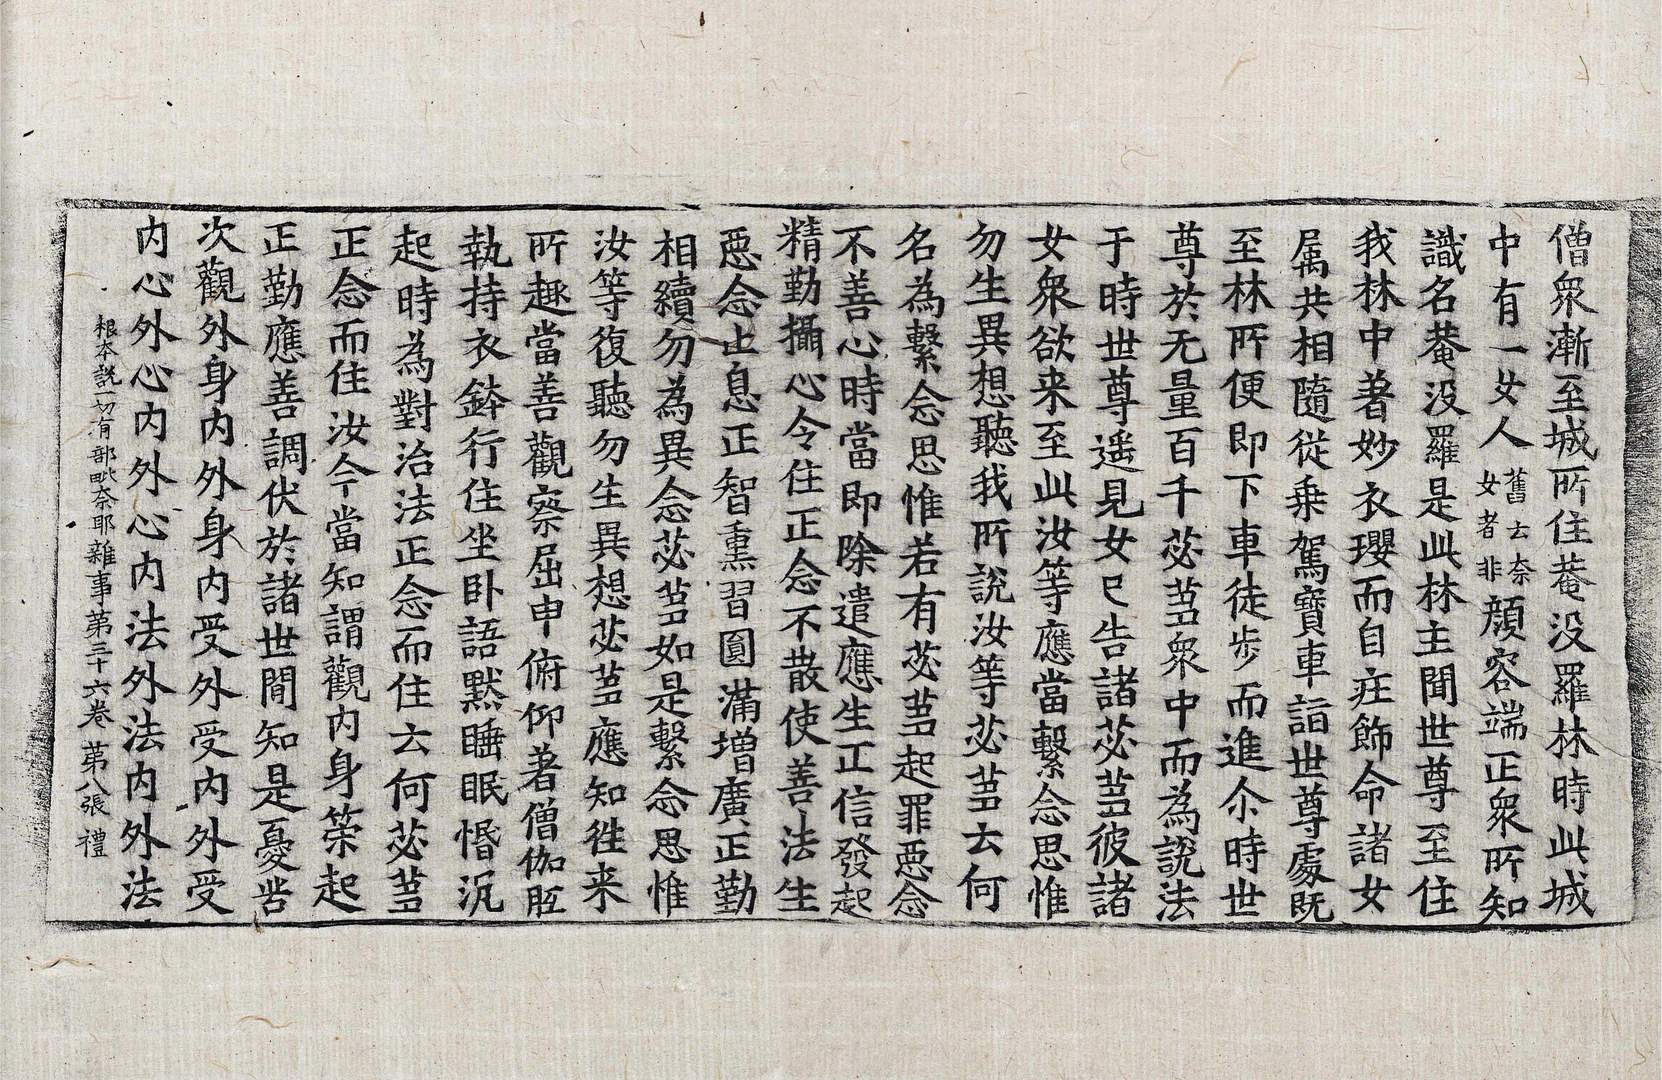 僧眾漸至城所住菴没羅林時此城
中有一女人舊云奈女者非顔容端正眾所知
識名菴没羅是此林主聞世尊至住
我林中著妙衣瓔而自庄飾命諸女
属共相隨從乗駕寶車詣世尊處既
至林所便即下車徒步而進尒時世
尊於无量百千苾芻眾中而為説法
于時世尊遥見女已告諸苾芻彼諸
女眾欲来至此汝等應當繫念思惟
勿生異想聽我所説汝等苾芻云何
名為繫念思惟若有苾芻起罪惡念
不善心時當即除遣應生正信發起
精勤攝心令住正念不散使善法生
惡念止息正智熏習圓滿増廣正勤
相續勿為異念苾芻如是繫念思惟
汝等復聽勿生異想苾芻應知徃来
所趣當善觀察屈申俯仰著僧伽胝
執持衣鉢行住坐卧語黙睡眠惛沉
起時為對治法正念而住云何苾芻
正念而住汝今當知謂觀内身䇿起
正勤應善調伏於諸世間知是憂苦
次觀外身内外身内受外受内外受
内心外心内外心内法外法内外法
根本説一切有部毗奈耶雜事第三十六卷 第八張 禮